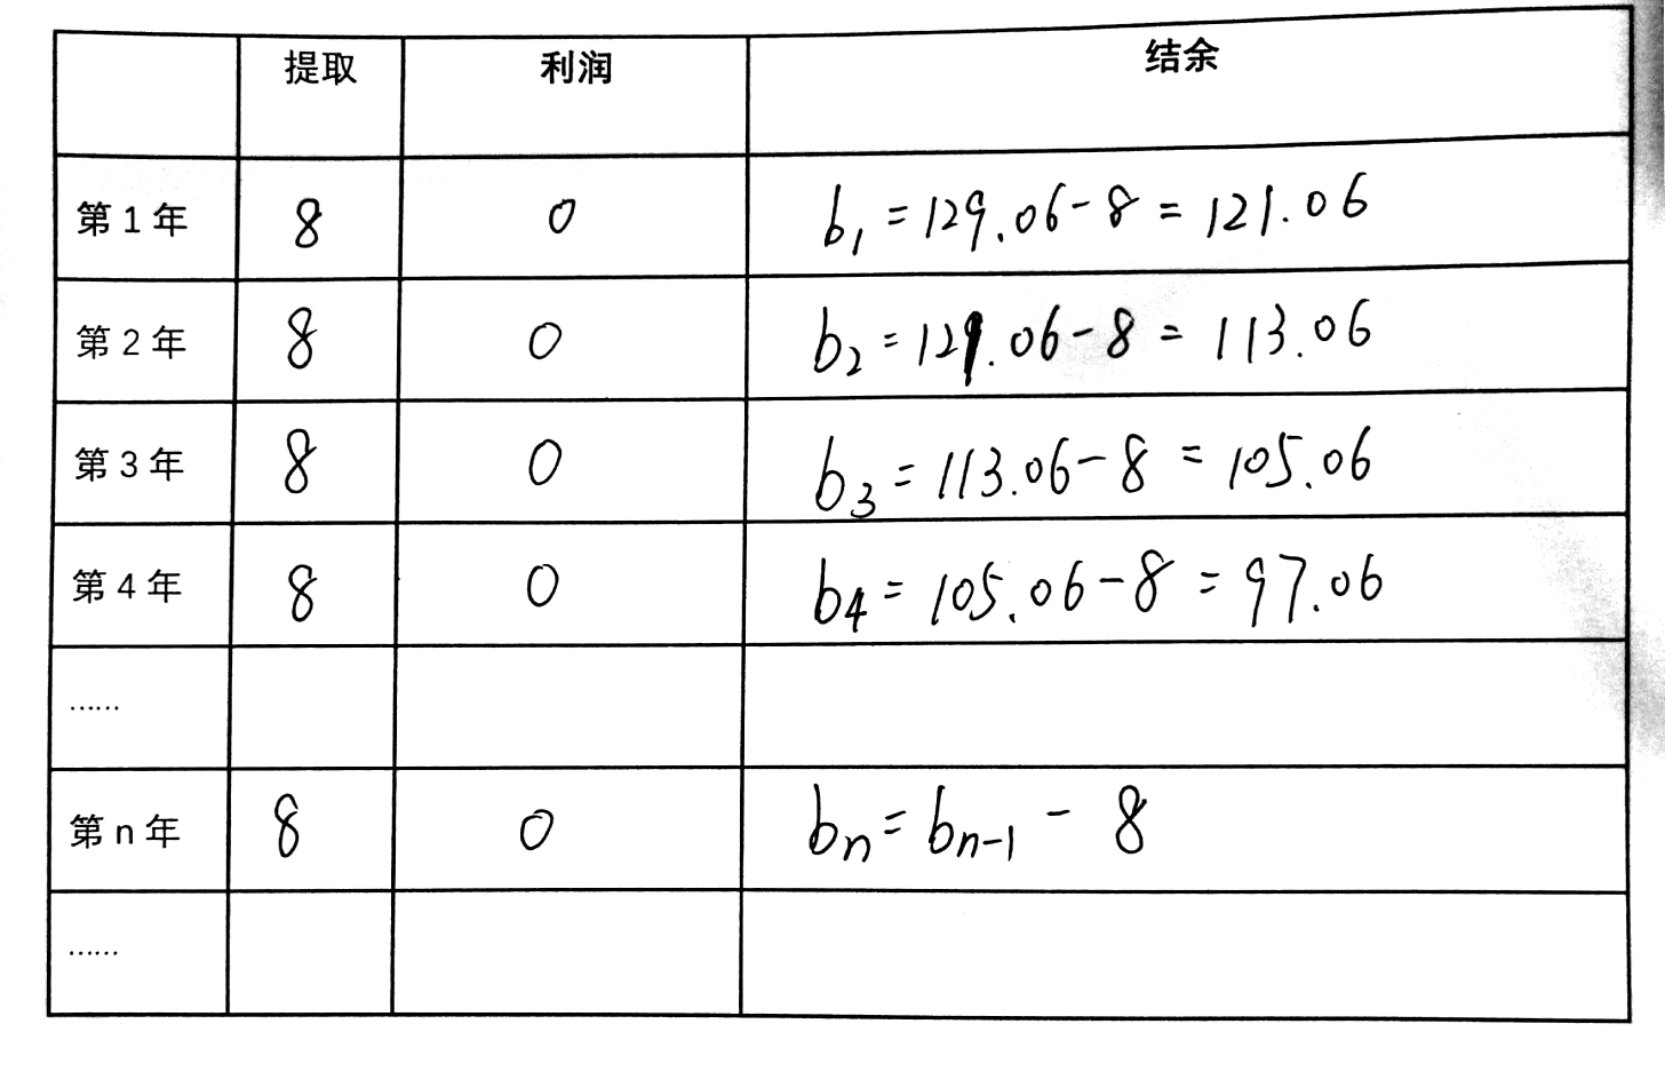 提取 利润 结余
第1年 8 0 b₁=129.06-8=121.06
第2年 8 0 b₂=121.06-8=113.06
第3年 8 0 b₃=113.06-8=105.06
第4年 8 0 b₄=105.06-8=97.06
……
第n年 8 0 bₙ=bₙ₋₁-8
……